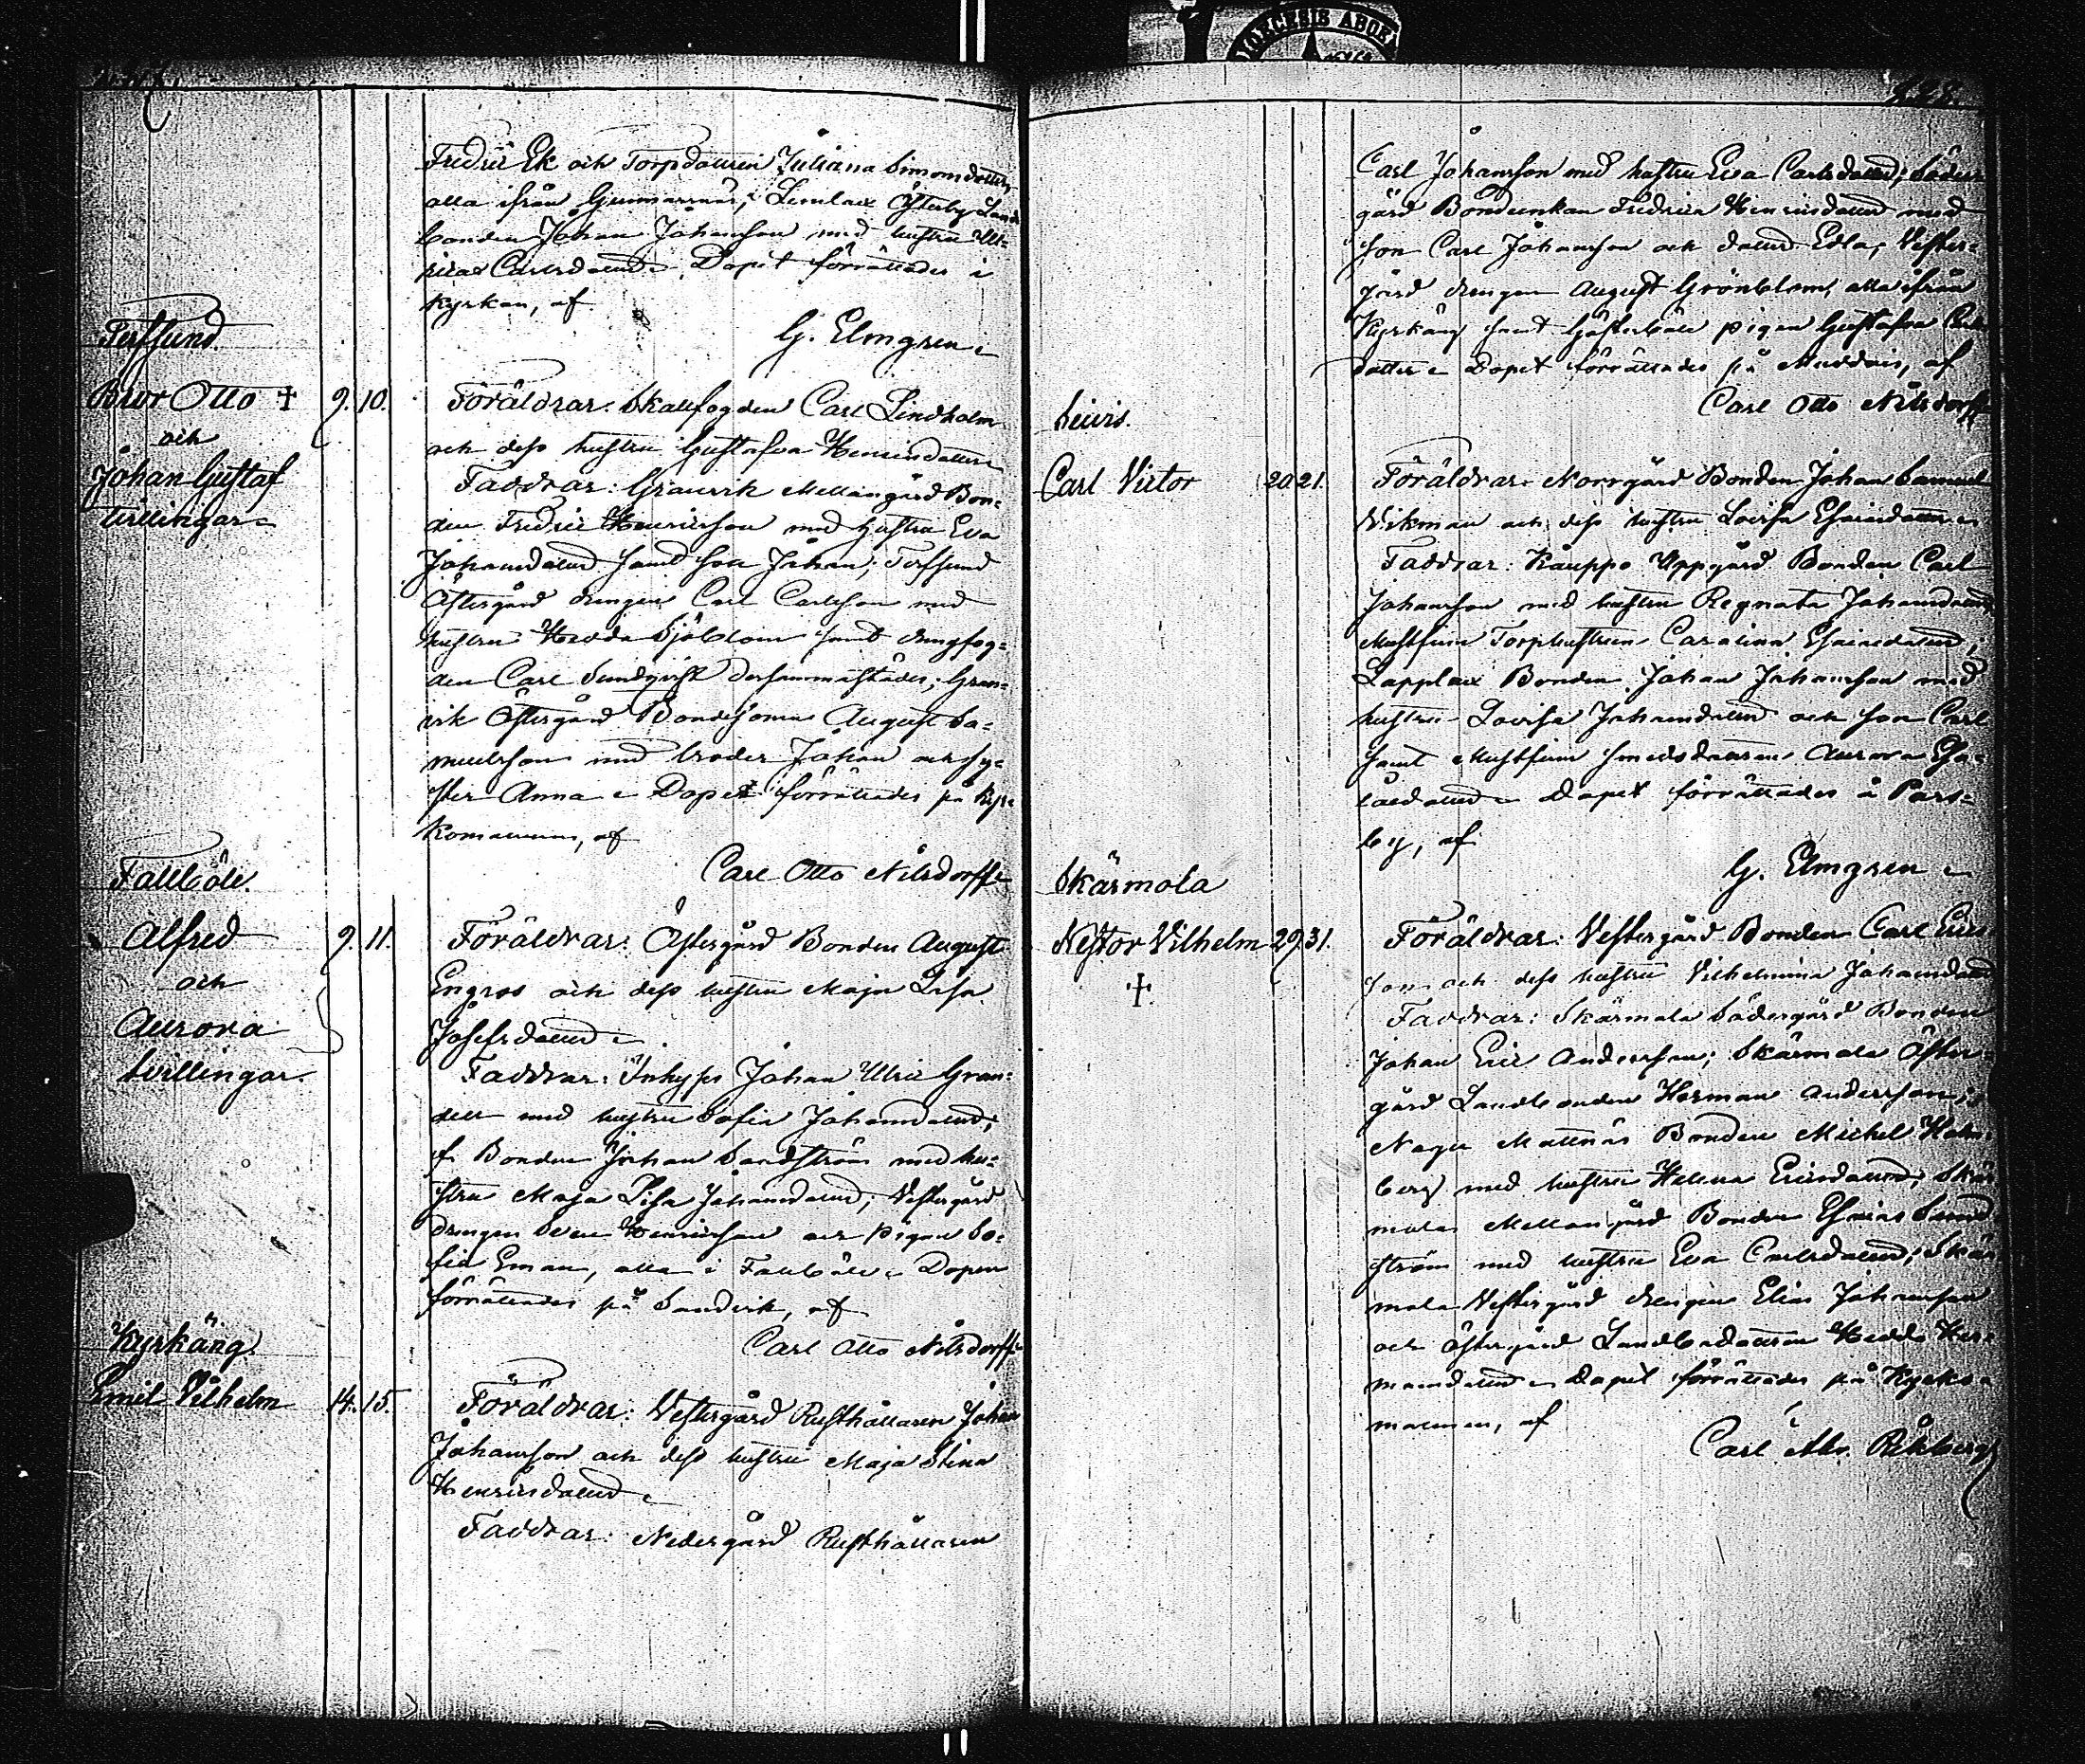 DIOECESIS ABOE
Fredric Ek och Torpdottren Juliana Simonsdotter,
alla ifrån Gunnarsnäs; Lemlax Österby Land-
bonden Johan Johansson med hustru Ul-
rica Carlsdotter. Dopet förrättades i
kyrkan, af
G. Elmgren
Terfsund
Bror Otto † 9. 10.
och
Johan Gustaf
tvillingar
Föräldrar: Skallfogden Carl Lindholm
och dess hustru Gustafva Henricsdotter
Faddrar: Granvik Mellangård Bon-
den Fredric Henricsson med hustru Eva
Johansdotter samt son Johan; Terfsund
Östergård drengen Carl Carlsson med
hustru Hedda Sjöblom samt drengfog-
den Carl Sundqvist dersammastädes; Gran-
vik Östergård Bondesonen August Sa-
muelsson med broder Johan och sy-
ster Anna. Dopet förrättades på Kyr-
komalmen, af
Carl Otto Nilsdorff
Fallböle.
Alfred 9. 11.
och
Aurora
tvillingar.
Föräldrar: Östergård Bonden August
Engros och dess hustru Maja Lisa
Josefsdotter
Faddrar: Inhyses Johan Ulric Gran-
dell med hustru Sofia Johansdotter;
f. Bonden Johan Sandström med hu-
stru Maja Lisa Johansdotter; Vestergård
drengen Sven Henricsson och pigan So-
fia Eman, alla i Fallböle. Dopen
förrättades på Sandvik, af
Carl Otto Nilsdorff
Kyrkäng.
Emil Vilhelm 14. 15.
Föräldrar: Vestergård Rusthållaren Johan
Johansson och dess hustru Maja Stina
Henricsdotter
Faddrar: Nedergård Rusthållaren
Carl Johansson med hustru Eva Carlsdotter; Söder-
gård Bondenkan Fredrica Henricsdotter med
son Carl Johansson och dotter Edla; Vester-
gård drengen August Grönblom, alla ifrån
Kyrkäng samt pigan Gustafva
dotter. Dopet förrättades på Muddais, af
Carl Otto Nilsdorff
Carl Victor 20. 21.
Föräldrar: Norrgård Bonden Johan Samuel
Wikman och dess hustru Lovisa Esaiasdotter
Faddrar: Kauppo Uppgård Bonden Carl
Johansson med hustru Regnata Johansdotter,
Mustfinn Torphustrun Carolina Esaiasdotter;
Lapplax Bonden Johan Johansson med
hustru Lovisa Johansdotter och son Carl
samt Mustfinn smedsdottren Aurora Esa-
iaedotter. Dopet förrättades å Pars-
by, af
G. Elmgren
Skärmola
Nestor Vilhelm 29. 31.
†
Föräldrar: Vestergård Bonden Carl Erics-
son och dess hustru Vilhelmina Johansdotter
Faddrar: Skärmola Södergård Bonden
Johan Eric Andersson; Skärmola Öster-
gård Landbonden Herman Andersson;
Nagu Mattnäs Bonden Michel Holm-
berg med hustru Helena Ericsdotter; Skär-
mola Mellangård Bonden Esaias Sund-
ström med hustru Eva Carlsdotter; Skär-
mola Vestergård drengen Elias Johansson
och Östergård Landbodottren Hedda Her-
mansdotter. Dopet förrättades på Kyrko-
malmen, af
Carl Alb. Rikberg